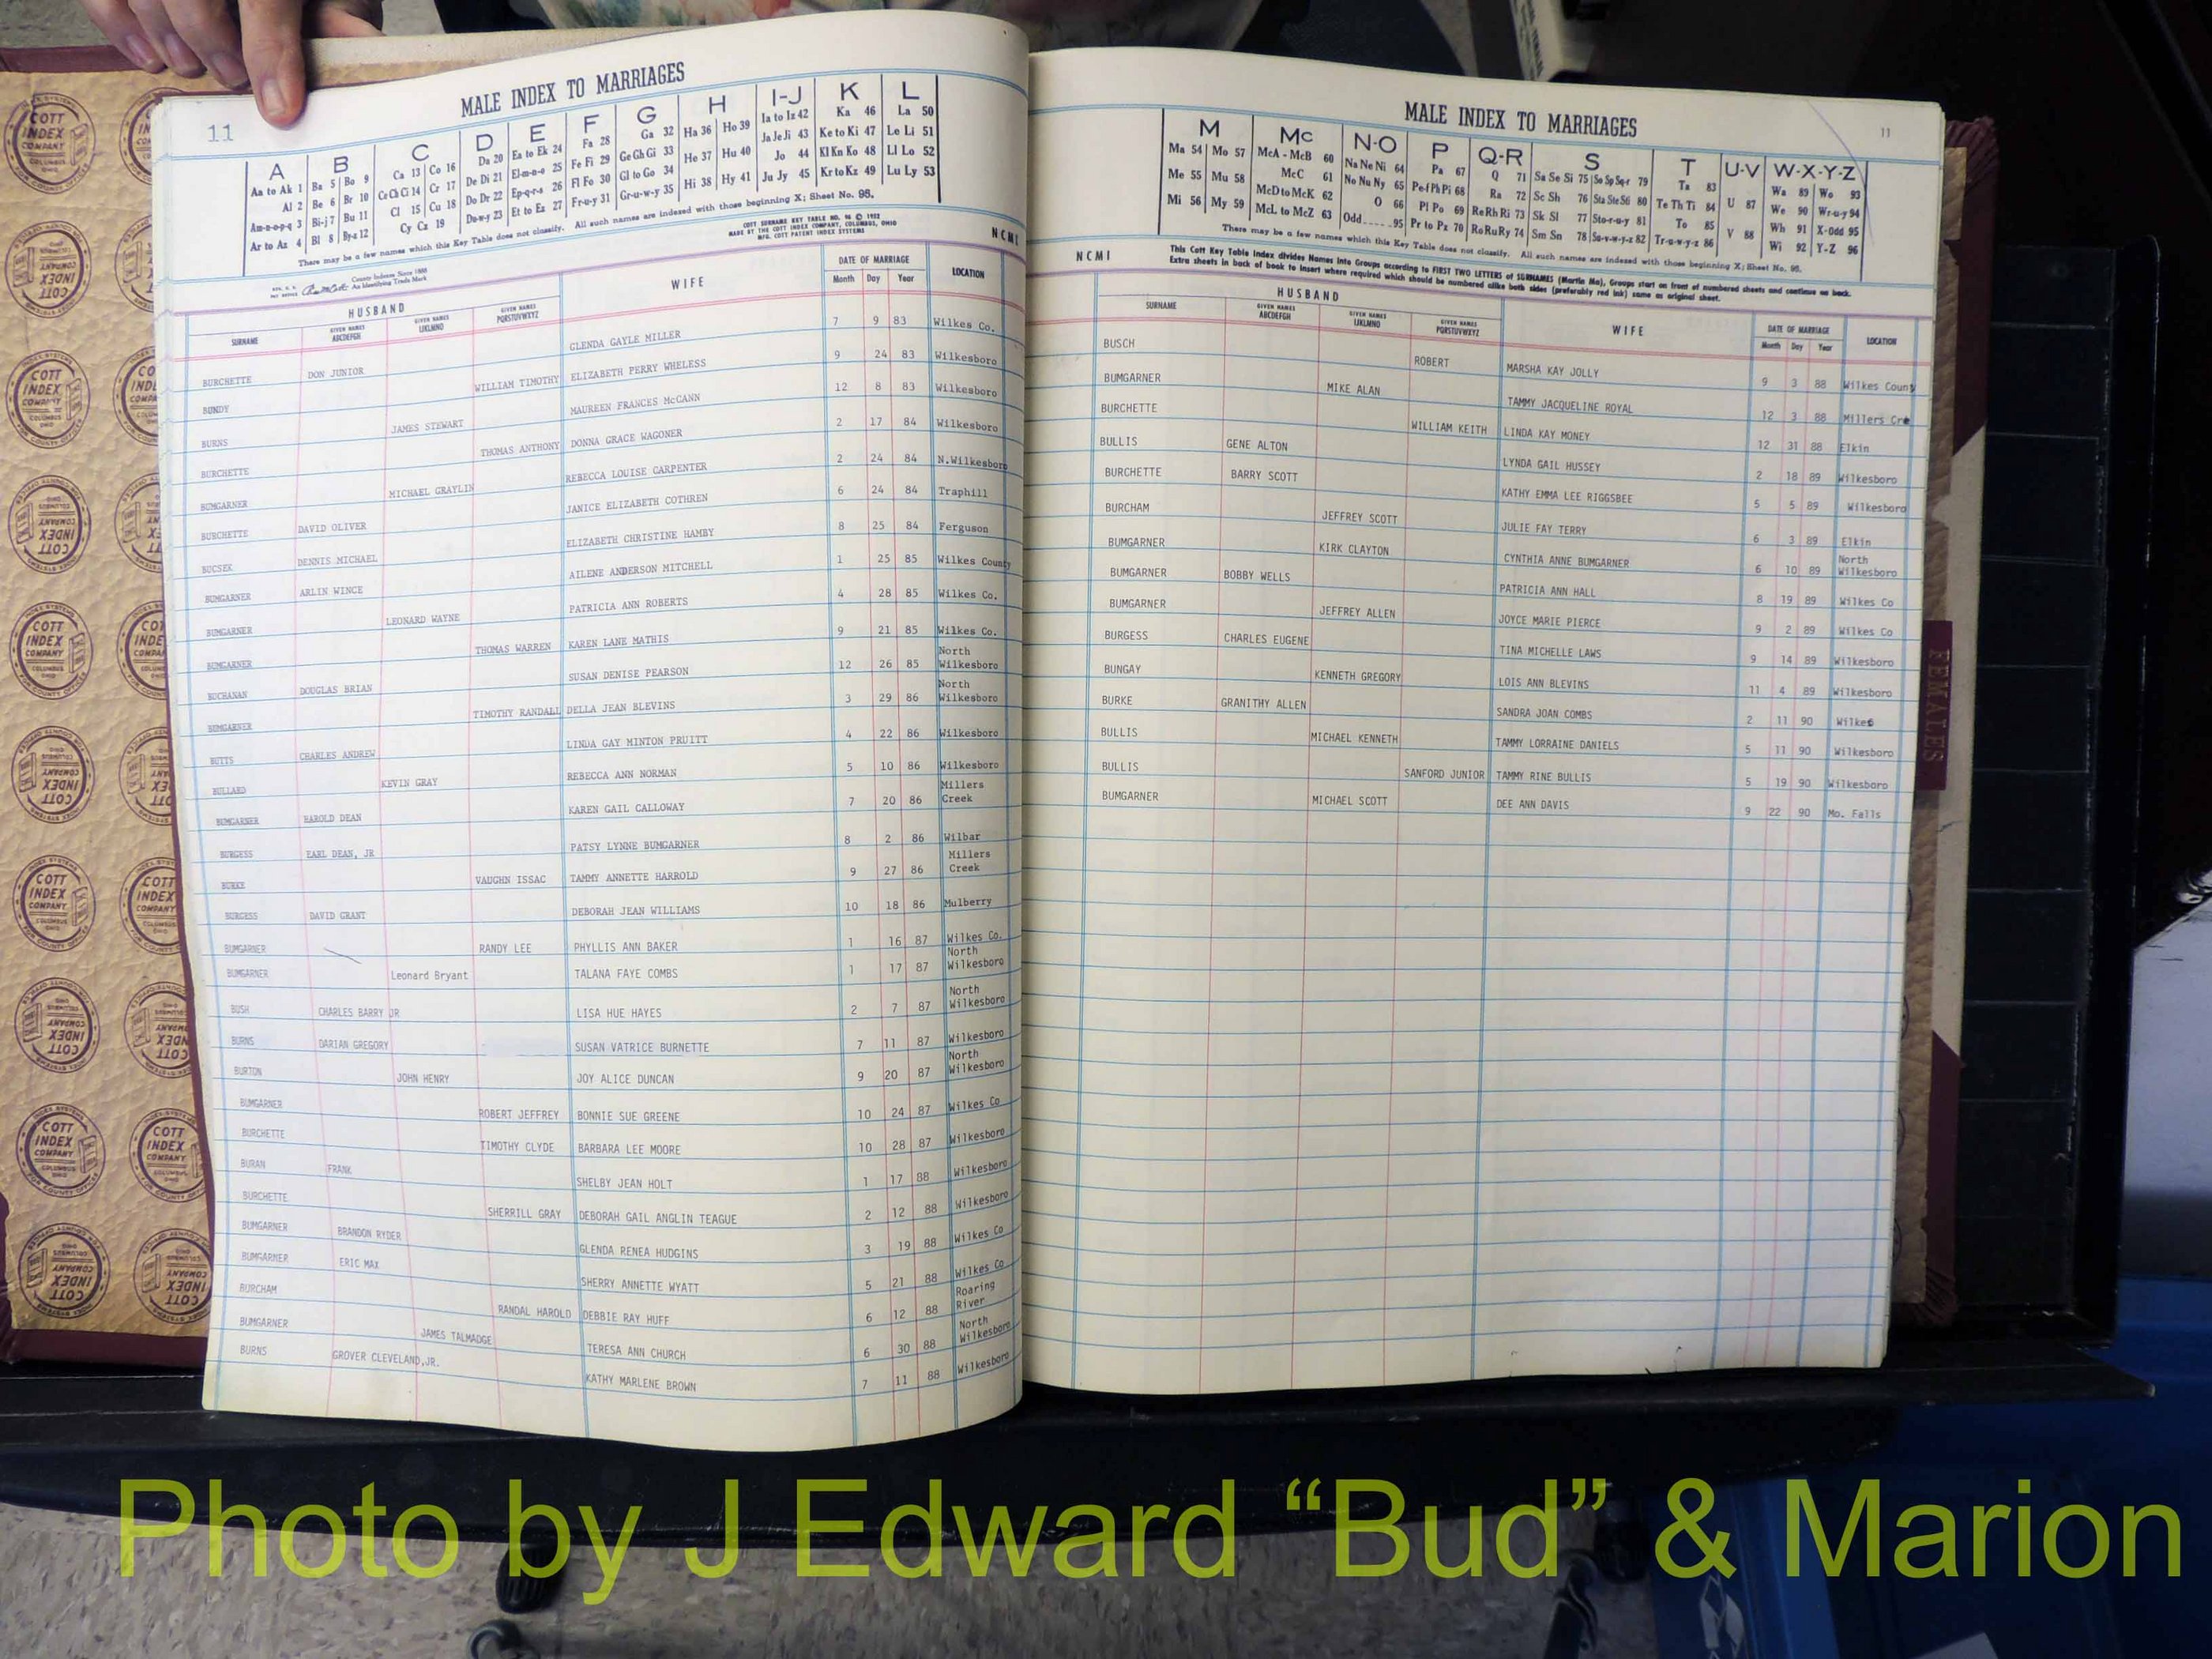 MALE INDEX TO MARRIAGES
11
A B C D E F G H I-J K L
Aa to Ak 1 Ba 5 Bo 9 Ca 13 Co 16 Da 20 Ea to Ek 24 Fa 28 Ga 32 Ha 36 Ho 39 Ia to Iz 42 Ka 46 La 50
Al 2 Be 6 Br 10 Ce Ch Ci 14 Cr 17 De Di 21 El-m-n-o 25 Fe Fi 29 Ge Gh Gi 33 He 37 Hu 40 Ja Je Ji 43 Ke to Ki 47 Le Li 51
Am-n-o-p-q 3 Bi-j 7 Bu 11 Cl 15 Cu 18 Do Dr 22 Ep-q-r-s 26 Fl Fo 30 Gl to Go 34 Hi 38 Hy 41 Jo 44 Kl Kn Ko 48 Ll Lo 52
Ar to Az 4 Bl 8 By-z 12 Cy Cz 19 Du-w-y 23 Et to Ez 27 Fr-u-y 31 Gr-u-w-y 35 Ju Jy 45 Kr to Kz 49 Lu Ly 53
There may be a few names which this Key Table does not classify. All such names are indexed with those beginning X; Sheet No. 95.
COTT SURNAME KEY TABLE NO. 96 © 1952
MADE BY THE COTT INDEX COMPANY, COLUMBUS, OHIO
MFG. COTT PATENT INDEX SYSTEMS
NCMI
County Indexes Since 1888
An Identifying Trade Mark
HUSBAND WIFE DATE OF MARRIAGE LOCATION
SURNAME GIVEN NAMES ABCDEFGH GIVEN NAMES IJKLMNO GIVEN NAMES PQRSTUVWXYZ Month Day Year
BURCHETTE DON JUNIOR GLENDA GAYLE MILLER 7 9 83 Wilkes Co.
BUNDY WILLIAM TIMOTHY ELIZABETH PERRY WHELESS 9 24 83 Wilkesboro
BURNS JAMES STEWART MAUREEN FRANCES McCANN 12 8 83 Wilkesboro
BURCHETTE THOMAS ANTHONY DONNA GRACE WAGONER 2 17 84 Wilkesboro
BUMGARNER MICHAEL GRAYLIN REBECCA LOUISE CARPENTER 2 24 84 N.Wilkesboro
BURCHETTE DAVID OLIVER JANICE ELIZABETH COTHREN 6 24 84 Traphill
BUCSEK DENNIS MICHAEL ELIZABETH CHRISTINE HAMBY 8 25 84 Ferguson
BUMGARNER ARLIN WINCE AILENE ANDERSON MITCHELL 1 25 85 Wilkes County
BUMGARNER LEONARD WAYNE PATRICIA ANN ROBERTS 4 28 85 Wilkes Co.
BUMGARNER THOMAS WARREN KAREN LANE MATHIS 9 21 85 Wilkes Co.
BUCHANAN DOUGLAS BRIAN SUSAN DENISE PEARSON 12 26 85 North Wilkesboro
BUMGARNER TIMOTHY RANDALL DELLA JEAN BLEVINS 3 29 86 North Wilkesboro
BUTTS CHARLES ANDREW LINDA GAY MINTON PRUITT 4 22 86 Wilkesboro
BULLARD KEVIN GRAY REBECCA ANN NORMAN 5 10 86 Wilkesboro
BUMGARNER HAROLD DEAN KAREN GAIL CALLOWAY 7 20 86 Millers Creek
BURGESS EARL DEAN, JR PATSY LYNNE BUMGARNER 8 2 86 Wilbar
BURKE VAUGHN ISSAC TAMMY ANNETTE HARROLD 9 27 86 Millers Creek
BURGESS DAVID GRANT DEBORAH JEAN WILLIAMS 10 18 86 Mulberry
BUMGARNER RANDY LEE PHYLLIS ANN BAKER 1 16 87 Wilkes Co.
BUMGARNER Leonard Bryant TALANA FAYE COMBS 1 17 87 North Wilkesboro
BUSH CHARLES BARRY JR LISA HUE HAYES 2 7 87 North Wilkesboro
BURNS DARIAN GREGORY SUSAN VATRICE BURNETTE 7 11 87 Wilkesboro
BURTON JOHN HENRY JOY ALICE DUNCAN 9 20 87 North Wilkesboro
BUMGARNER ROBERT JEFFREY BONNIE SUE GREENE 10 24 87 Wilkes Co
BURCHETTE TIMOTHY CLYDE BARBARA LEE MOORE 10 28 87 Wilkesboro
BURAN FRANK SHELBY JEAN HOLT 1 17 88 Wilkesboro
BURCHETTE SHERRILL GRAY DEBORAH GAIL ANGLIN TEAGUE 2 12 88 Wilkesboro
BUMGARNER BRANDON RYDER GLENDA RENEA HUDGINS 3 19 88 Wilkes Co
BUMGARNER ERIC MAX SHERRY ANNETTE WYATT 5 21 88 Wilkes Co
BURCHAM RANDAL HAROLD DEBBIE RAY HUFF 6 12 88 Roaring River
BUMGARNER JAMES TALMADGE TERESA ANN CHURCH 6 30 88 North Wilkesboro
BURNS GROVER CLEVELAND,JR. KATHY MARLENE BROWN 7 11 88 Wilkesboro
MALE INDEX TO MARRIAGES
11
M Mc N-O P Q-R S T U-V W-X-Y-Z
Ma 54 Mo 57 McA - McB 60 Na Ne Ni 64 Pa 67 Q 71 Sa Se Si 75 So Sp Sq-r 79 Ta 83 U 87 Wa 89 Wo 93
Me 55 Mu 58 McC 61 No Nu Ny 65 Pe-f Ph Pi 68 Ra 72 Sc Sh 76 Sta Ste Sti 80 Te Th Ti 84 We 90 Wr-u-y 94
Mi 56 My 59 McD to McK 62 O 66 Pl Po 69 Re Rh Ri 73 Sk Sl 77 Sto-r-u-y 81 To 85 V 88 Wh 91 X-Odd 95
McL to McZ 63 Odd 95 Pr to Pz 70 Ro Ru Ry 74 Sm Sn 78 Su-v-w-y-z 82 Tr-u-w-y-z 86 Wi 92 Y-Z 96
There may be a few names which this Key Table does not classify. All such names are indexed with those beginning X; Sheet No. 95.
NCMI
This Cott Key Table Index divides Names into Groups according to FIRST TWO LETTERS of SURNAMES (Martin Ma), Groups start on front of numbered sheets and continue on back.
Extra sheets in back of book to insert where required which should be numbered alike both sides (preferably red ink) same as original sheet.
HUSBAND WIFE DATE OF MARRIAGE LOCATION
SURNAME GIVEN NAMES ABCDEFGH GIVEN NAMES IJKLMNO GIVEN NAMES PQRSTUVWXYZ Month Day Year
BUSCH ROBERT MARSHA KAY JOLLY 9 3 88 Wilkes County
BUMGARNER MIKE ALAN TAMMY JACQUELINE ROYAL 12 3 88 Millers Cre
BURCHETTE WILLIAM KEITH LINDA KAY MONEY 12 31 88 Elkin
BULLIS GENE ALTON LYNDA GAIL HUSSEY 2 18 89 Wilkesboro
BURCHETTE BARRY SCOTT KATHY EMMA LEE RIGGSBEE 5 5 89 Wilkesboro
BURCHAM JEFFREY SCOTT JULIE FAY TERRY 6 3 89 Elkin
BUMGARNER KIRK CLAYTON CYNTHIA ANNE BUMGARNER 6 10 89 North Wilkesboro
BUMGARNER BOBBY WELLS PATRICIA ANN HALL 8 19 89 Wilkes Co
BUMGARNER JEFFREY ALLEN JOYCE MARIE PIERCE 9 2 89 Wilkes Co
BURGESS CHARLES EUGENE TINA MICHELLE LAWS 9 14 89 Wilkesboro
BUNGAY KENNETH GREGORY LOIS ANN BLEVINS 11 4 89 Wilkesboro
BURKE GRANITHY ALLEN SANDRA JOAN COMBS 2 11 90 Wilkes
BULLIS MICHAEL KENNETH TAMMY LORRAINE DANIELS 5 11 90 Wilkesboro
BULLIS SANFORD JUNIOR TAMMY RINE BULLIS 5 19 90 Wilkesboro
BUMGARNER MICHAEL SCOTT DEE ANN DAVIS 9 22 90 Mo. Falls
FEMALES
COTT INDEX COMPANY
Photo by J Edward “Bud” & Marion